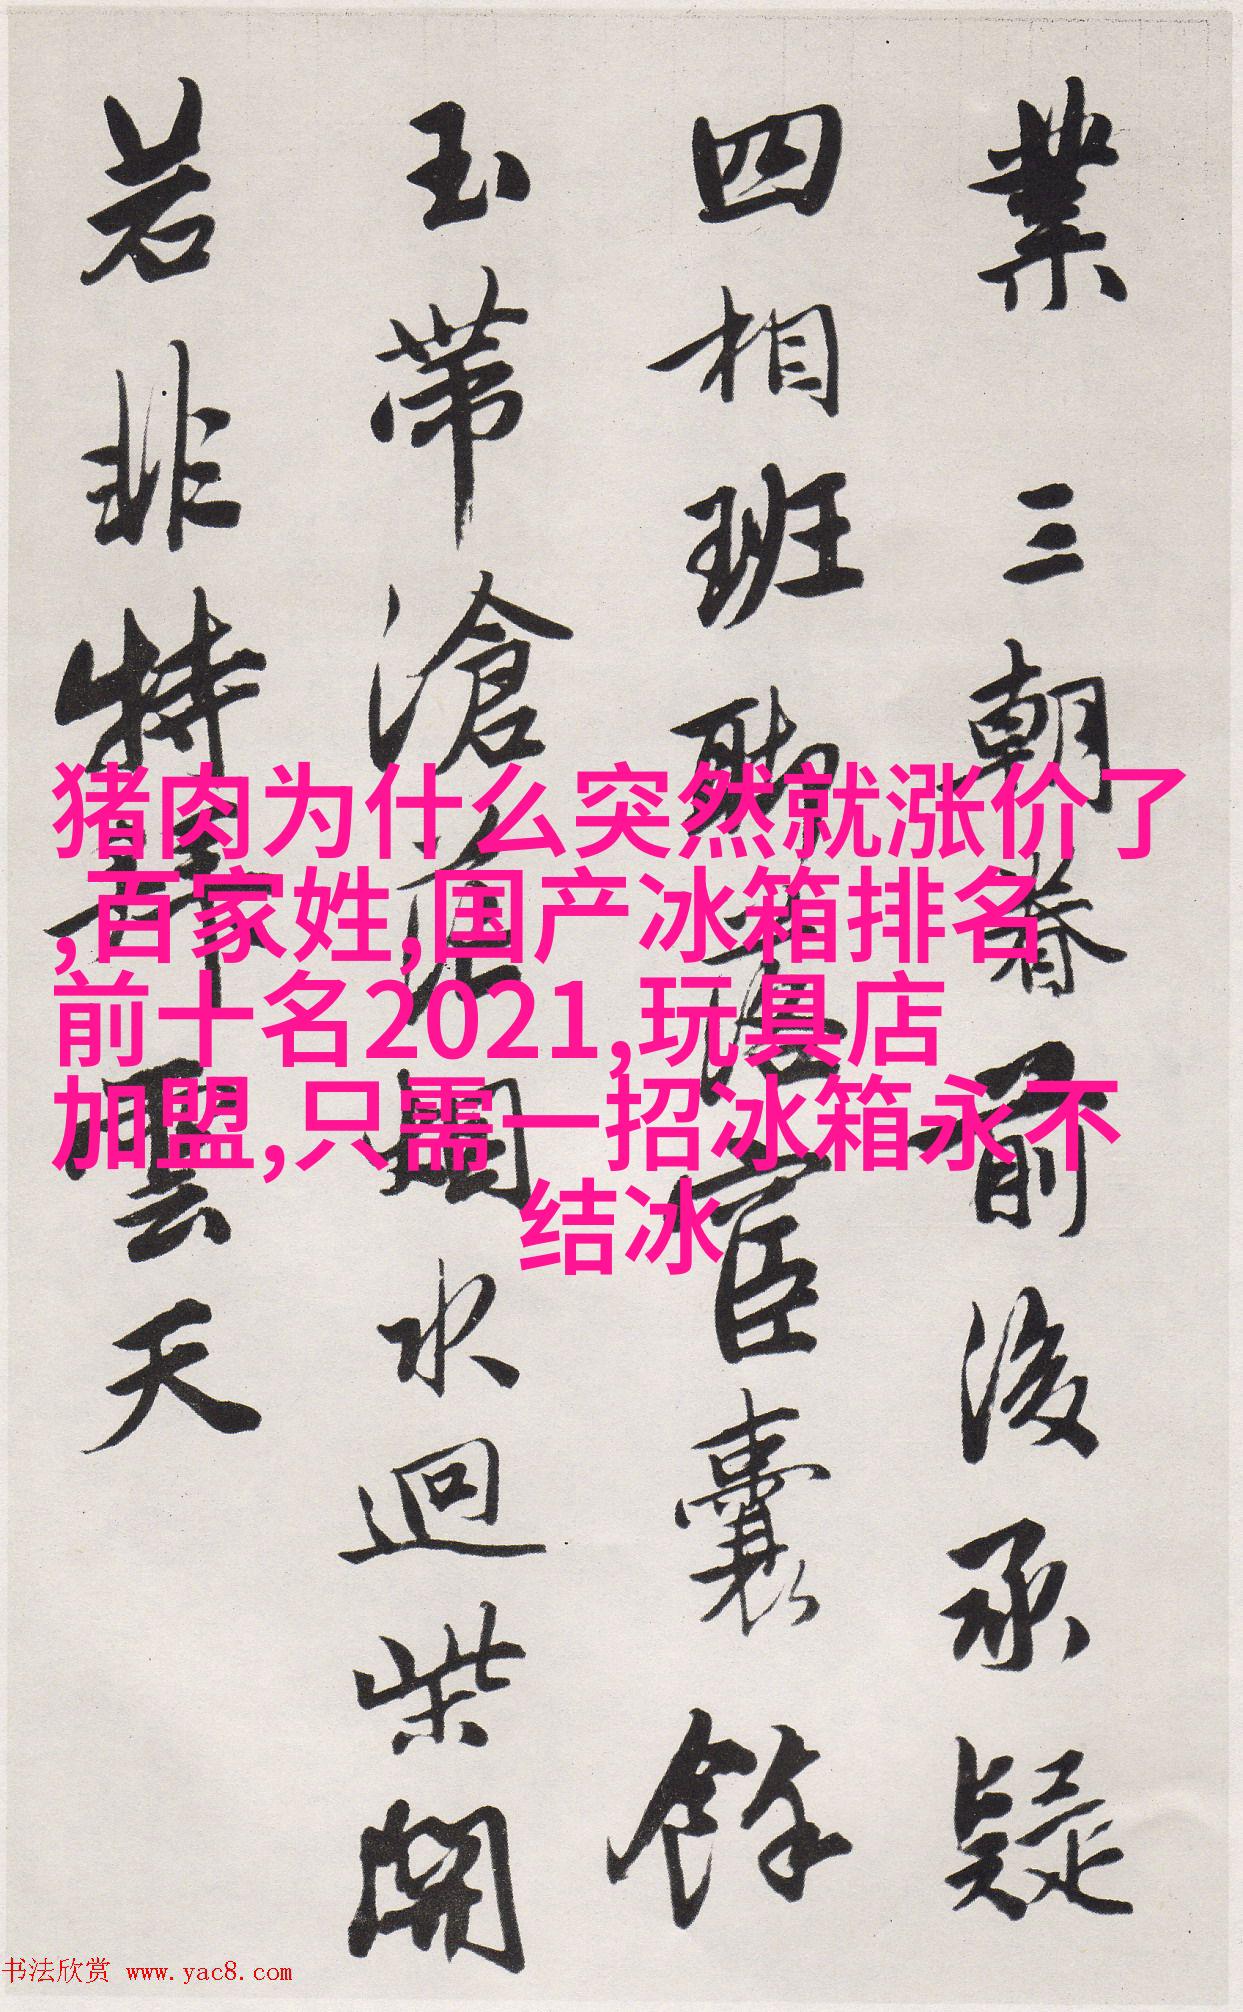 業三朝眷前後承疑
四相班聯宦囊餘
玉帶滄烟水迴柴開
若非特雲天
猪肉为什么突然就涨价了
,百家姓,国产冰箱排名
前十名2021,玩具店
加盟,只需一招冰箱永不
结冰
书法欣赏 www.yac8.com